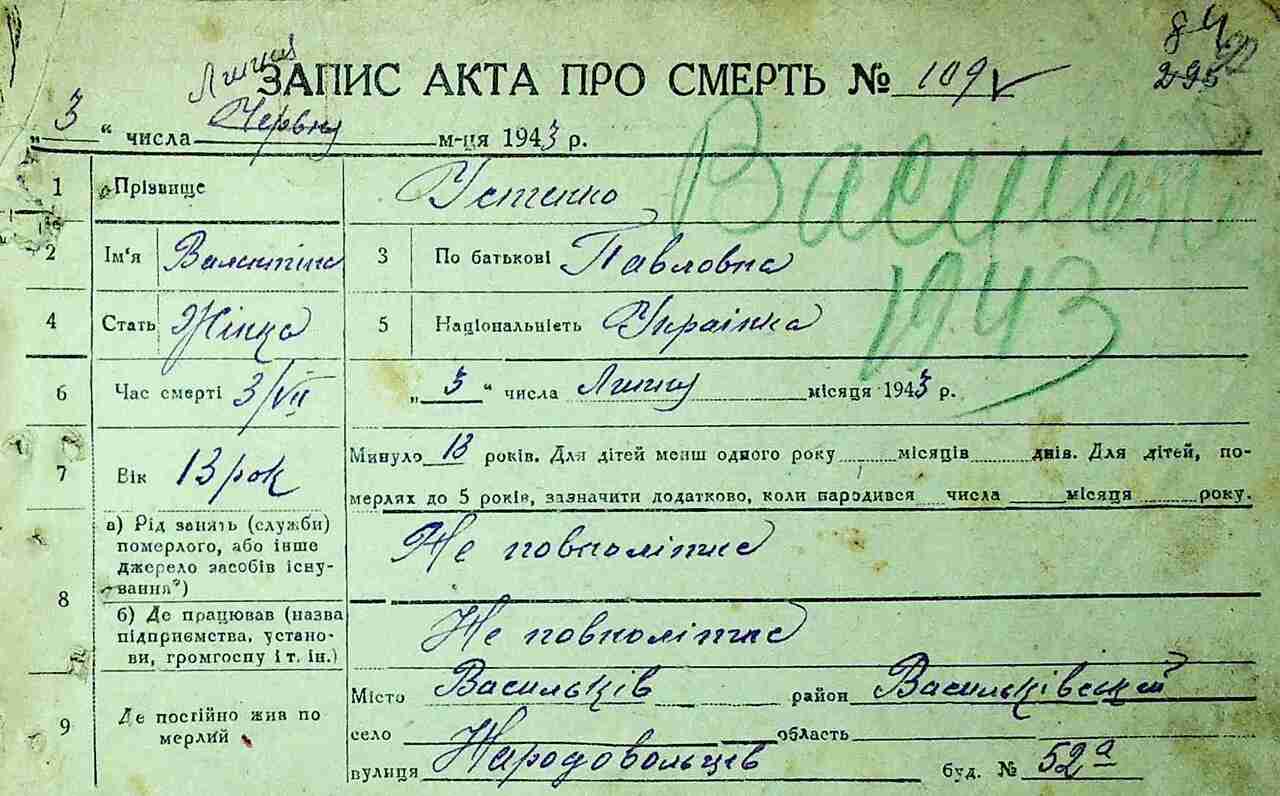 84
295
Липня
ЗАПИС АКТА ПРО СМЕРТЬ № 109
„3“ числа Червня м-ця 1943 р.
Васильків
1943
1 Прізвище Устенко
2 Ім'я Валентіна 3 По батькові Павловна
4 Стать Жінка 5 Національність Українка
6 Час смерті 3/VII „3“ числа Липня місяця 1943 р.
7 Вік 13 рок Минуло 13 років. Для дітей менш одного року місяців днів. Для дітей, по-
мерлях до 5 років, зазначити додатково, коли народився числа місяця року.
8 а) Рід занять (служби) Не повнолітне
померлого, або інше
джерело засобів існу-
вання*)
б) Де працював (назва Не повнолітне
підприємства, устано-
ви, громгоспу і т. ін.)
9 Де постійно жив по
мерлий
Місто Васильків район Васильківський
село область
вулиця Народовольців буд. № 52а